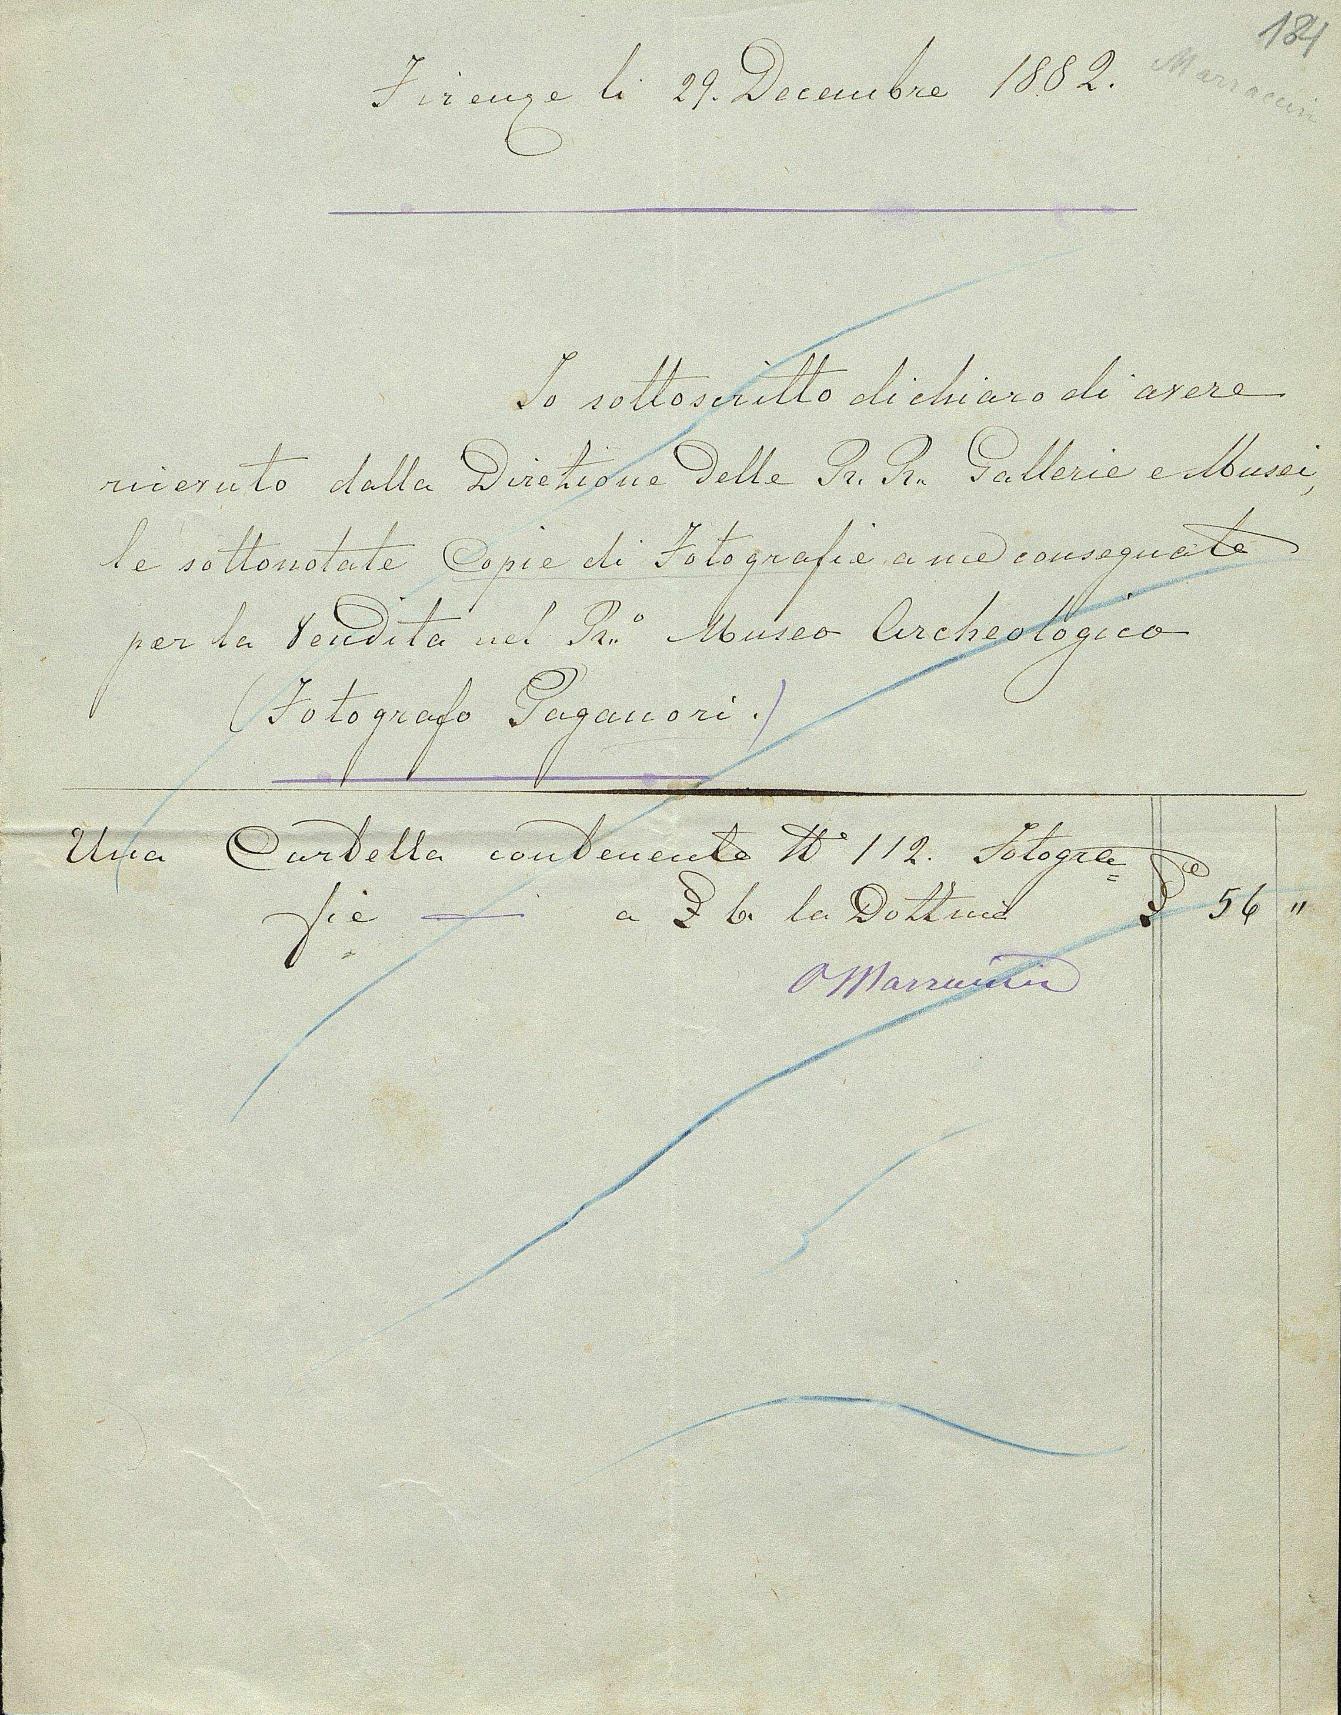 184
Marraccini
Firenze li 29. Decembre 1882.
Io sottoscritto dichiaro di avere
ricevuto dalla Direzione delle R. R. Gallerie e Musei,
le sottonotate Copie di Fotografie a me consegnate
per la Vendita nel R.º Museo Archeologico
(Fotografo Paganori.)
Una Cartella contenente Nº 112. Fotogra=
fie — a £ 6. la Dottina £e 56 "
O Marraccini